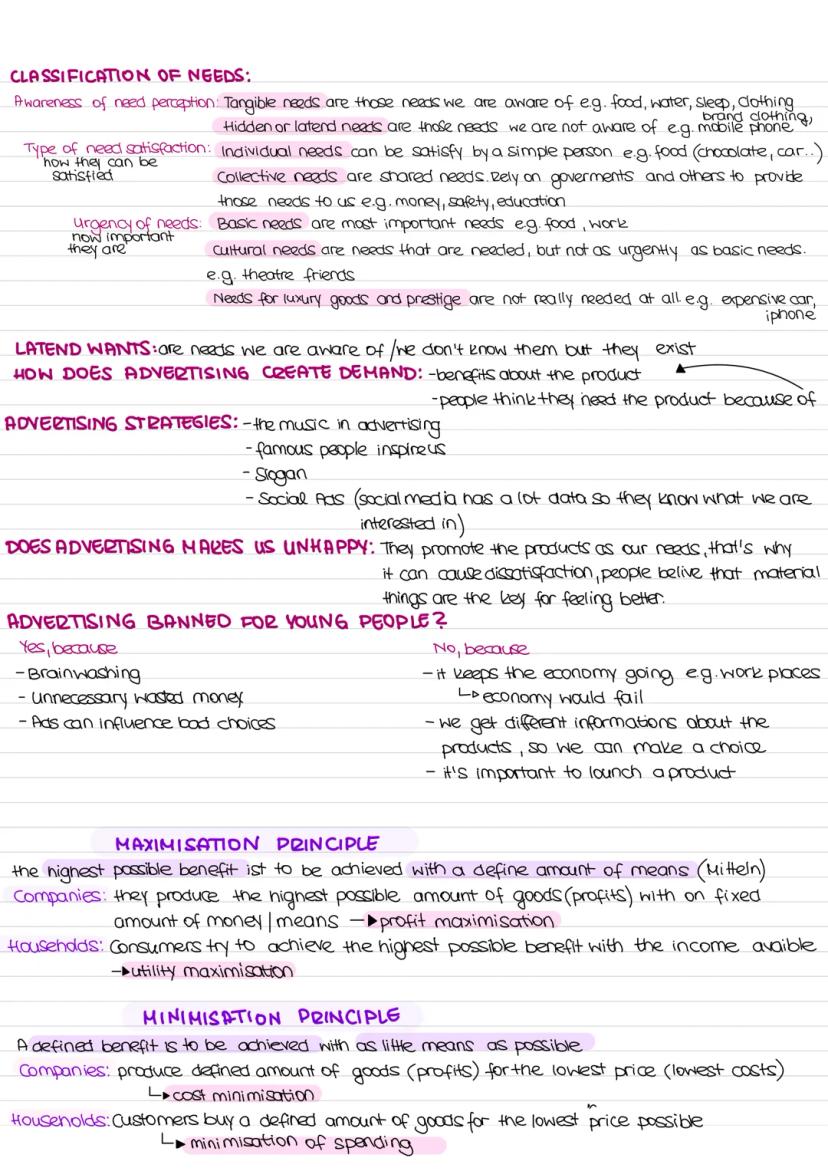 CLASSIFICATION OF NEEDS:
Awareness of need perception: Tangible needs are those needs we are aware of e.g. food, water, sleep, clothing
brand clothing,
Hidden or latend needs are those needs we are not aware of e.g. mobile phone
Type of need satisfaction: Individual needs can be satisfy by a simple person e.g. food (chocolate, car..)
how they can be
satisfied
Collective needs are shared needs. Rely on goverments and others to provide
those needs to us e.g. money, safety, education
Urgency of needs: Basic needs are most important needs e.g. food, work
how important
they are
Cultural needs are needs that are needed, but not as urgently as basic needs.
e.g. theatre friends
Needs for luxury goods and prestige are not really needed at all e.g. expensive car,
iphone
LATEND WANTS: are needs we are aware of / we don't know them but they exist
HOW DOES ADVERTISING CREATE DEMAND: - benefits about the product
- people think they need the product because of
ADVERTISING STRATEGIES: - the music in advertising
- famous people inspire us
- Slogan
- Social Ads (social media has a lot data so they know what we are
interested in)
DOES ADVERTISING MAKES US UNHAPPY: They promote the products as our needs, that's why
it can cause dissatisfaction, people belive that material
things are the key for feeling better.
ADVERTISING BANNED FOR YOUNG PEOPLE?
Yes, because
- Brainwashing
- Unnecessary wasted money
- Ads can influence bad choices
No, because
- it keeps the economy going e.g. work places
↳ economy would fail
- we get different informations about the
products, so we can make a choice
- it's important to lounch a product
MAXIMISATION PRINCIPLE
the highest possible benefit ist to be achieved with a define amount of means (Mitteln)
Companies: they produce the highest possible amount of goods (profits) with on fixed
amount of money | means → profit maximisation
Households: Consumers try to achieve the highest possible benefit with the income avaible
→ utility maximisation
MINIMISATION PRINCIPLE
A defined benefit is to be achieved with as little means as possible
Companies: produce defined amount of goods (profits) for the lowest price (lowest costs)
↳ cost minimisation
Households: Customers buy a defined amount of goods for the lowest price possible
↳ minimisation of spending